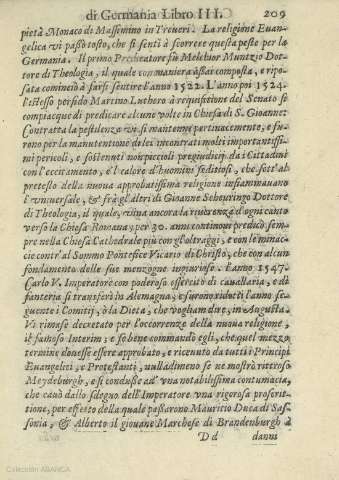 di Germania Libro III. 209
pietà Monaco di Massimino in Treueri. La religione Euan-
gelica vi passò tosto, che si sentì à scorrere questa peste per la
Germania. Il primo Predicatore fù Melchior Muntzio Dot-
tore di Theologia, il quale con maniera assai composta, e ripo-
sata cominciò à farsi sentire l'anno 1522. L'anno poi 1524.
l'istesso perfido Martino Luthero à requisitione del Senato si
compiacque di predicare alcune volte in Chiesa di S. Gioanne:
Contratta la pestilenza vi si mantenne pertinacemente, e fu-
rono per la manutentione de lei incontrati molti importantissi-
mi pericoli, e sostenuti non piccioli pregiudicij da i Cittadini
con l'eccitamento, e'l calore d'huomini seditiosi, che sott'al
pretesto della nuoua approbatissima religione infiammauano
l'vniuersale, & frà gl'altri di Gioanne Scheyringo Dottore
di Theologia, il quale, vinta ancora la riuerenza d'ogni canto
verso la Chiesa Romana, per 30. anni continoui predicò sem-
pre nella Chiesa Cathedrale più con gl'oltraggi, e con le minac-
cie contr'al Sommo Pontefice Vicario di Christo, che con alcun
fondamento delle sue menzogne ingiurioso. L'anno 1547.
Carlo V. Imperatore con poderoso essercito di cauallaria, e di
fanteria si transferì in Alemagna, e furono ridutti l'anno se-
guente i Comitij, ò la Dieta, che vogliam dire, in Augusta.
Vi rimase decretato per l'occorrenze della nuoua religione,
il famoso Interim; e se bene commandò egli, che quel mezzo
termine douesse essere approbato, e riceuuto da tutti i Principi
Euangelici, e Protestanti, nulladimeno se ne mostrò ritroso
Meydeburgh, e si condusse ad' vna notabilissima contumacia,
che cauò dallo sdegno dell'Imperatore vna rigorosa proscrit-
tione, per effetto della quale passarono Mauritio Duca di Sas-
sonia, & Alberto il giouane Marchese di Brandenburgh à
D d danni
Colección ABANCA